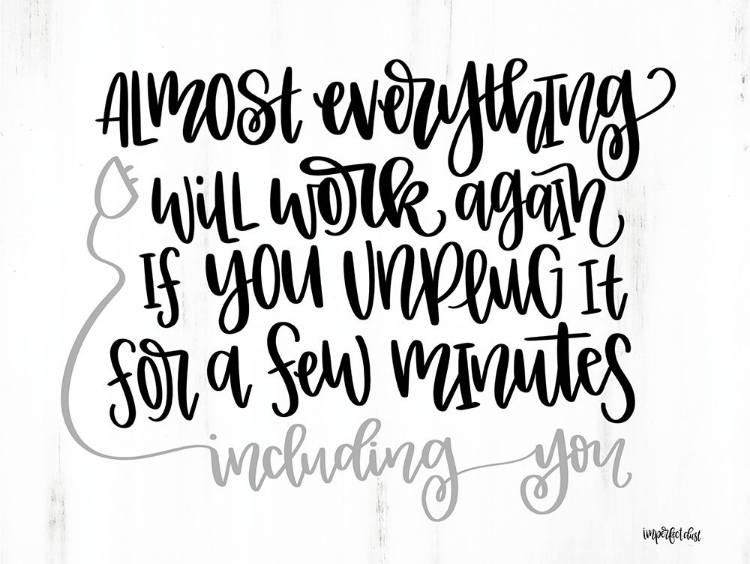 ALmOSt everythIng
wiLL work again
If you unpluG It
for a few mInutes
including you
imperfect dust